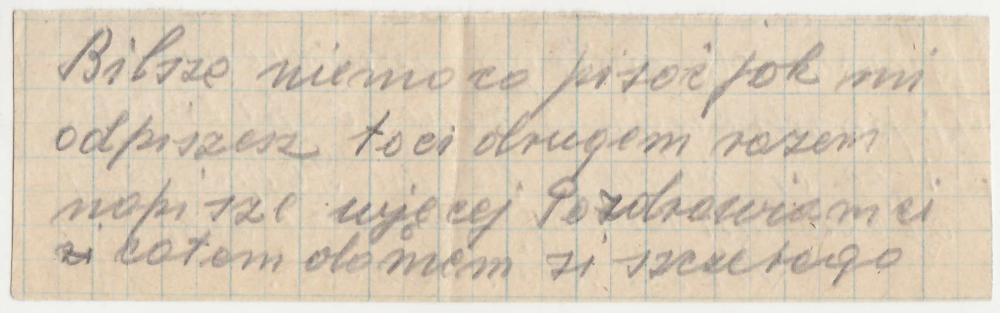 Bilsze niema co pisać jak mi
odpiszesz toci drugem razem
napisze wjęcej Pozdrawiam ci
zi catem domem zi szczerego